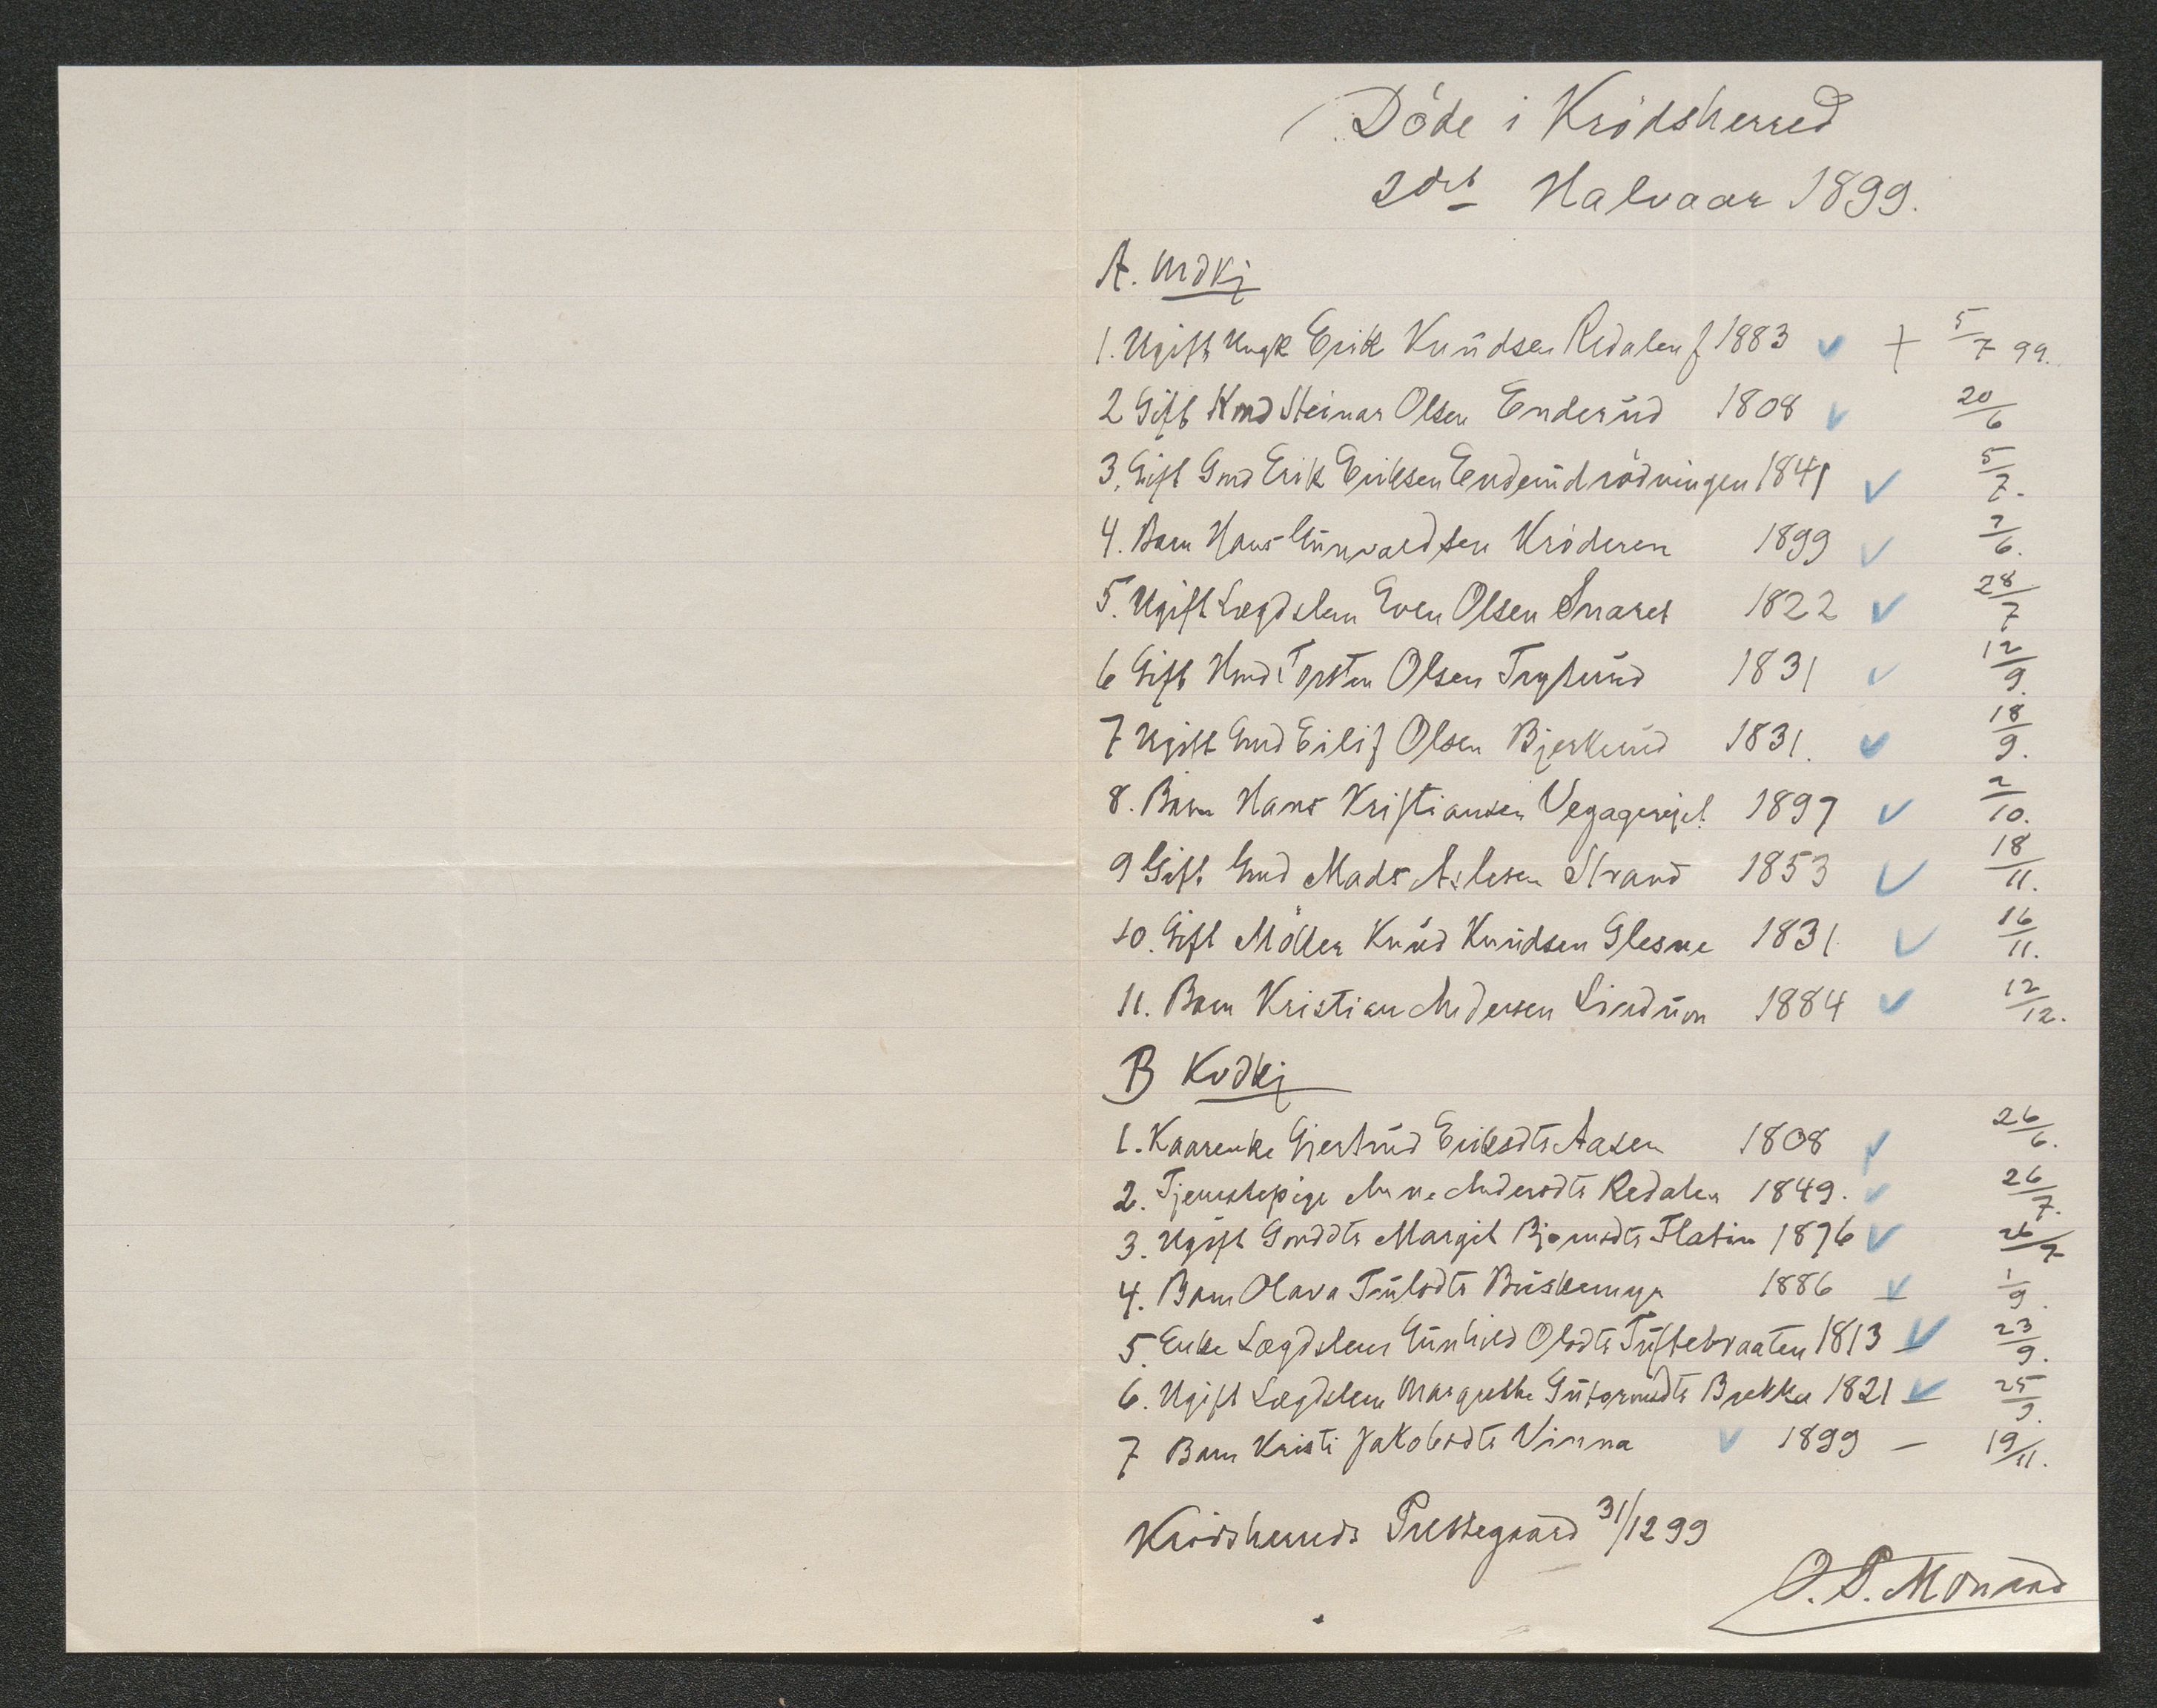 Döde i Krödsherred
2det Halvaar 1899.
A. Mdkj
1. Ugift Ungk Erik Knudsen Redalen f 1883 ✓ + 5/7 99.
2 Gift Kmd Steinar Olsen Enderud 1808 ✓ 20/6
3. Gift Gmd Erik Eriksen Enderudrödningen 1841 ✓ 5/7.
4. Barn Hans Gunvaldsen Kröderen 1899 ✓ 7/6.
5. Ugift Lægdslem Even Olsen Snaret 1822 ✓ 28/7
6 Gift Hmd Torsten Olsen 1831 ✓ 12/9.
7 Ugift Gmd Eilif Olsen Bjerkerud 1831. ✓ 18/9.
8. Barn Hans Kristiansen 1897 ✓ 2/10.
9 Gift Gmd Mads Aslesen Strand 1853 ✓ 18/11.
10. Gift Möller Knud Knudsen Glesne 1831 ✓ 16/11.
11. Barn Kristian Andersen 1884 ✓ 12/12.
B Kvdkj
1. Kaarenke Gjertrud Eriksdtr Aasen 1808 ✓ 26/6.
2. Tjenestepige Anne Andersdtr Redalen 1849. ✓ 26/7.
3. Ugift Gmddtr Margit Bjørnsdtr Flatin 1876 ✓ 26/7
4. Barn Olava Trulsdtr 1886 ✓ 1/9.
5. Enke Lægdslem Gunhild Olsdtr Tuftebraaten 1813 ✓ 23/9.
6. Ugift Lægdslem Margrethe Guttormsdtr Brekka 1821 ✓ 25/9.
7 Barn Kristi Jakobsdtr Vinna ✓ 1899 — 19/11.
Krödsherreds Prestegaard 31/12 99
O. P. Monrad